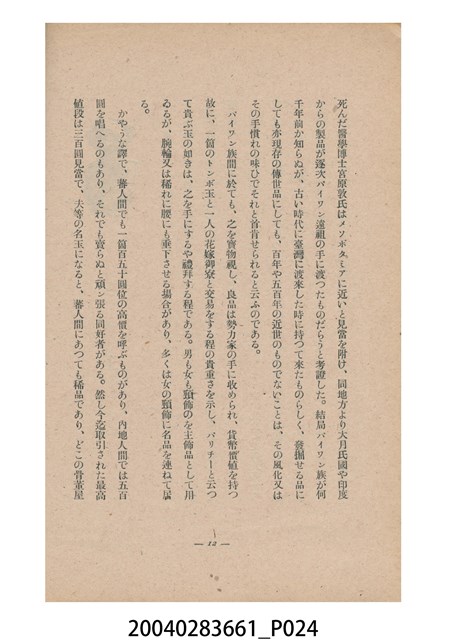 死んだ醫學博士宮原敦氏はメソポタミアに近いと見當を附け、同地方より大月氏國や印度
からの製品が逐次パイワン遠祖の手に渡つたものだらうと考證した。結局パイワン族が何
千年前か知らぬが、古い時代に臺灣に渡來した時に持つて來たものらしく、發掘せる品に
しても亦現存の傳世品にしても、百年や五百年の近世のものでないことは、その風化又は
その手慣れの味ひでそれと首肯せられると云ふのである。
パイワン族間に於ても、之を寶物視し、良品は勢力家の手に收められ、貨幣價値を持つ
故に、一箇のトンボ玉と一人の花嫁御寮と交易をする程の貴重さを示し、パリチーと云つ
て貴ぶ玉の如きは、之を手にするや禮拜する程である。男も女も頸飾のを主飾品として用
ゐるが、腕輪又は稀れに腰にも垂下させる場合があり、多くは女の頸飾に名品を連ねて居
る。
かやうな譯で、蕃人間でも一箇百五十圓位の高價を呼ぶものがあり、內地人間では五百
圓を唱へるのもあり、それでも賣らぬと頑ン張る同好者がある。然し今迄取引された最高
値段は三百圓見當で、夫等の名玉になると、蕃人間にあつても稀品であり、どこの骨董屋
— 12 —
20040283661_P024